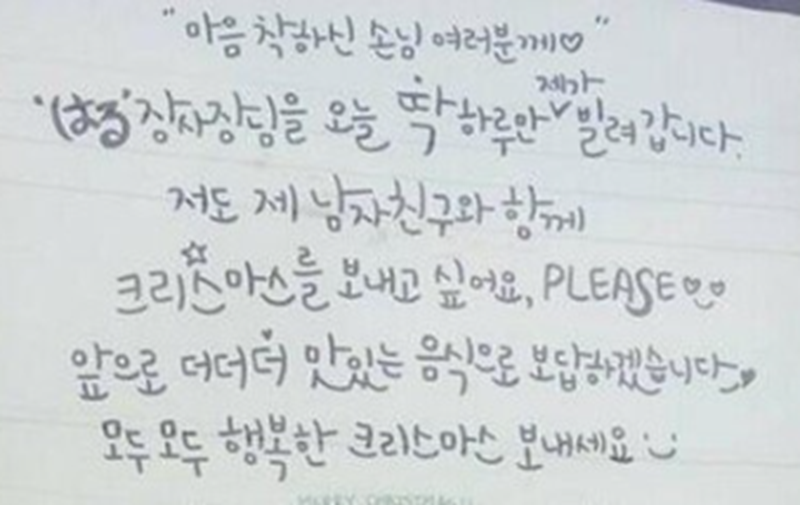 "마음 착하신 손님 여러분께♡"
'はる' 장사장님을 오늘 딱 하루만 제가 빌려 갑니다.
저도 제 남자친구와 함께
크리스마스를 보내고 싶어요, PLEASE
앞으로 더더더 맛있는 음식으로 보답하겠습니다
모두모두 행복한 크리스마스 보내세요
MERRY CHRISTMAS